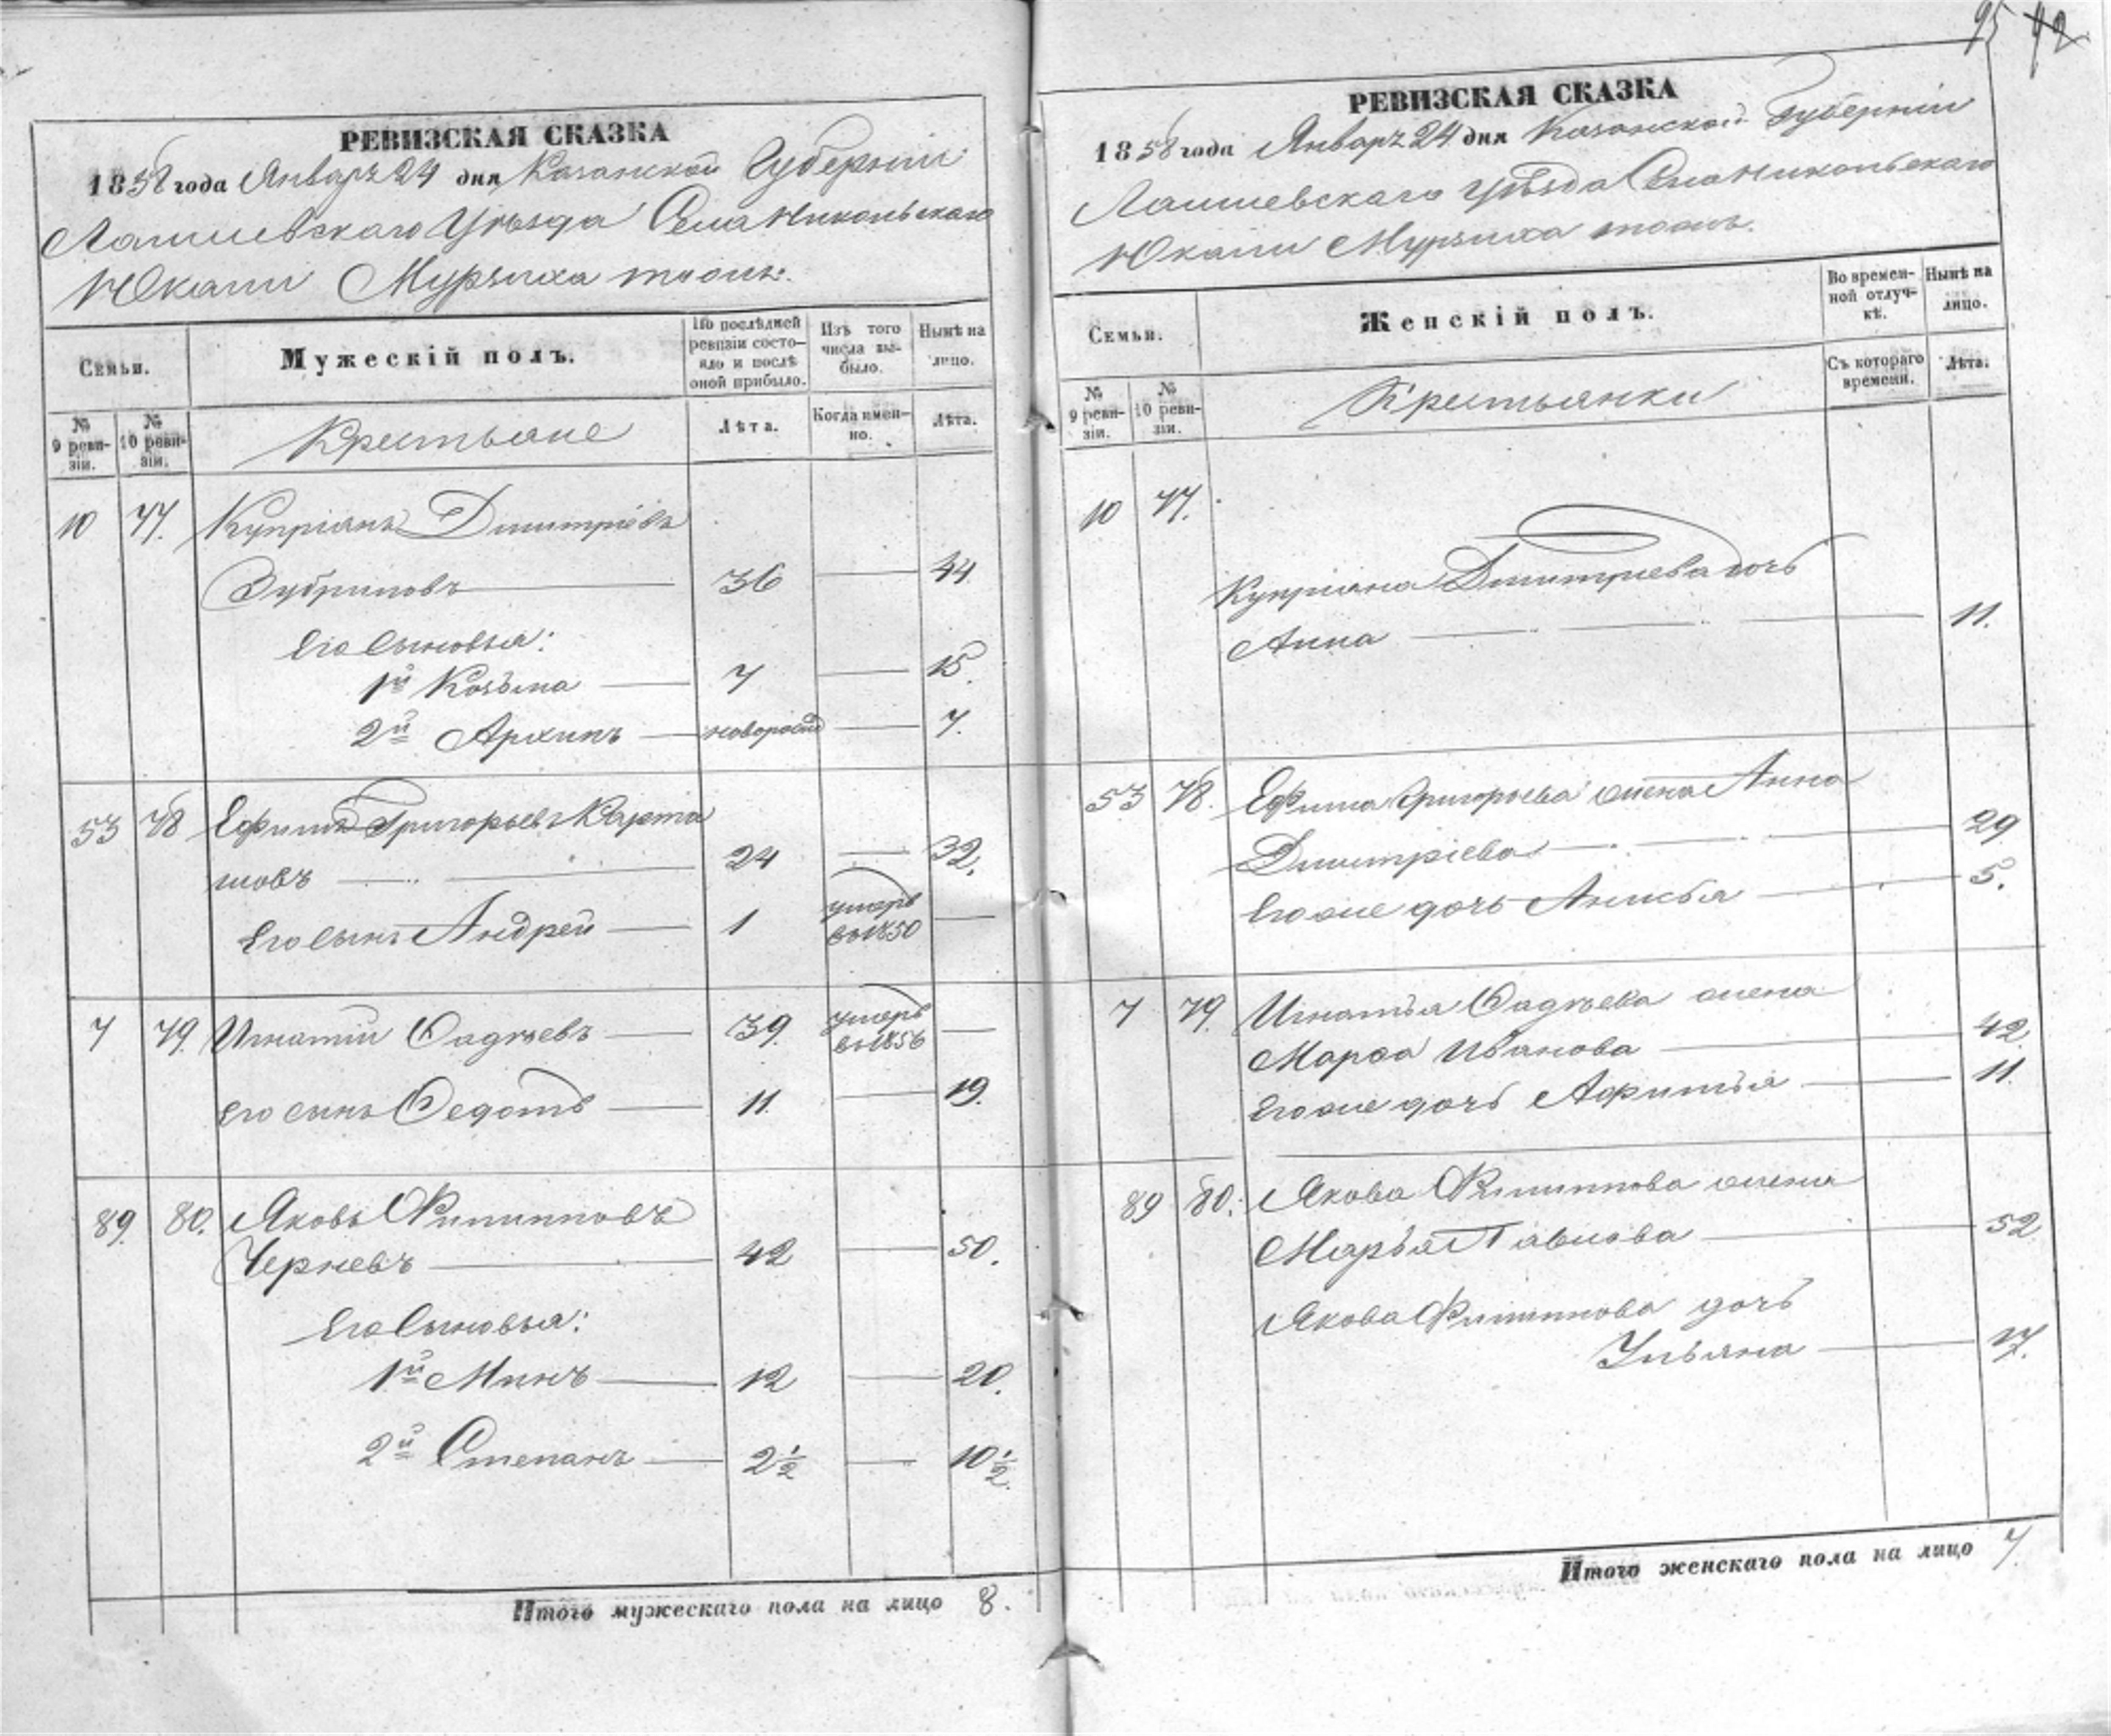 РЕВИЗСКАЯ СКАЗКА
1858 года Январь 24 дня Казанской Губерніи
Лаишевскаго Уѣзда Села Никольскаго
Юкали Мурзиха тожъ.
Семьи.
Мужескій полъ.
По послѣдней ревизіи состояло и послѣ оной прибыло.
Изъ того числа выбыло.
Нынѣ на лицо.
№ 9 ревизіи.
№ 10 ревизіи.
Крестьяне
Лѣта.
Когда именно.
Лѣта.
10 77. Купріянъ Дмитріевъ
Зубриловъ 36 — 44
Его Сыновья:
1й Козьма — 7 — 15.
2й Архипъ — новорожд — 7.
53 78 Ефимъ Григорьевъ Карта
шовъ — 24 — 32.
Его сынъ Андрей — 1 умеръ въ 1850 —
7 79. Игнатій Фадѣевъ — 39. умеръ въ 1856 —
Его сынъ Федотъ — 11. — 19.
89. 80. Яковъ Филипповъ
Черневъ — 42 — 50.
Его Сыновья:
1й Минъ — 12 — 20.
2й Степанъ — 2½ — 10½.
Итого мужескаго пола на лицо 8.
95 42
РЕВИЗСКАЯ СКАЗКА
1858 года Январь 24 дня Казанской Губерніи
Лаишевскаго Уѣзда Села Никольскаго
Юкали Мурзиха тожъ.
Семьи.
Женскій полъ.
Во временной отлучкѣ.
Нынѣ на лицо.
№ 9 ревизіи.
№ 10 ревизіи.
Крестьянки
Съ котораго времени.
Лѣта.
10 77.
Купріяна Дмитриева дочь
Анна — 11.
53 78. Ефима Григорьева жена Анна
Дмитріева — 29
Его же дочь Анисья — 5.
7 79. Игнатья Фадѣева жена
Марфа Иванова — 42
Его же дочь Афимья — 11.
89 80. Якова Филиппова жена
Марья Павлова — 52
Якова Филиппова дочь
Ульяна — 17.
Итого женскаго пола на лицо 7